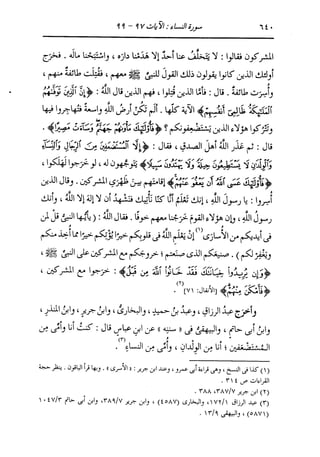 ٦٤٠ سورة النساء : الآيات ٩٧ - ٩٩
المشركون فقالوا : لا يَتَخَلَّفُ عنا أحدٌ إلا هَدَمْنا دارَه ، واسْتَبَحْنا مالَه . فخرَج
أولئك الذين كانوا يقولون ذلك القولَ للنبيِّ ﷺ معهم ، فقُتِلَت طائفةٌ منهم ،
وأُسِرَت طائفةٌ . قال : فأمَّا الذين قُتِلوا ، فهم الذين قال اللهُ : ﴿ إِنَّ الَّذِينَ تَوَفَّاهُمُ
الْمَلَائِكَةُ ظَالِمِي أَنْفُسِهِمْ ﴾ الآيةَ كلَّها . ألم تَكُنْ أرضُ اللهِ واسعةً فتُهاجِروا فيها
وتَتْرُكوا هؤلاء الذين يَسْتَضْعِفونكم ؟ ﴿ فَأُولَٰئِكَ مَأْوَاهُمْ جَهَنَّمُ وَسَاءَتْ مَصِيرًا ﴾ .
قال : ثم عَذَر اللهُ أهلَ الصدقِ ، فقال : ﴿ إِلَّا الْمُسْتَضْعَفِينَ مِنَ الرِّجَالِ وَالنِّسَاءِ
وَالْوِلْدَانِ لَا يَسْتَطِيعُونَ حِيلَةً وَلَا يَهْتَدُونَ سَبِيلًا ﴾ يتوجَّهون له ، لو خرَجوا لهَلَكوا ،
﴿ فَأُولَٰئِكَ عَسَى اللَّهُ أَنْ يَعْفُوَ عَنْهُمْ ﴾ إقامتَهم بين ظَهْرَي المشركين . وقال الذين
أُسِروا : يا رسولَ اللهِ ، إنك تَعْلَمُ أنَّا كنا نأتيك فنَشْهَدُ أن لا إلهَ إلا اللهُ ، وأنك
رسولُ اللهِ ، وإن هؤلاء القومَ خرَجنا معهم خوفًا . فقال اللهُ : ( يا أيها النبيُّ قل لمن
في أيديكم من الأُسارَى (١) إن يَعْلَمِ اللهُ في قلوبِكم خيرًا يُؤْتِكم خيرًا مما أُخِذ منكم
ويَغْفِرْ لكم ) . صنيعَكم الذي صنَعتم ؛ خروجَكم مع المشركين على النبيِّ ﷺ ،
﴿ وَإِنْ يُرِيدُوا خِيَانَتَكَ فَقَدْ خَانُوا اللَّهَ مِنْ قَبْلُ ﴾ : خرَجوا مع المشركين ،
﴿ فَأَمْكَنَ مِنْهُمْ ﴾ [الأنفال : ٧١] (٢) .
وأخرَج عبدُ الرزاقِ ، وعبدُ بنُ حميدٍ ، والبخاريُّ ، وابنُ جريرٍ ، وابنُ المنذرِ ،
وابنُ أبي حاتمٍ ، والبيهقيُّ في « سننِه » عن ابنِ عباسٍ قال : كنتُ أنا وأُمِّي من
المُسْتَضْعَفِين ؛ أنا من الوِلْدانِ ، وأُمِّي من النساءِ (٣) .
(١) كذا في النسخ ، وهي قراءة أبي عمرو ، وعند ابن جرير : « الأسرى » . وبها قرأ الباقون . ينظر حجة
القراءات ص ٣١٤ .
(٢) ابن جرير ٣٨٧/٧ ، ٣٨٨ .
(٣) عبد الرزاق ١٧٢/١ ، والبخاري (٤٥٨٧) ، وابن جرير ٣٨٩/٧ ، وابن أبي حاتم ١٠٤٧/٣
(٥٨٧١) ، والبيهقي ١٣/٩ .